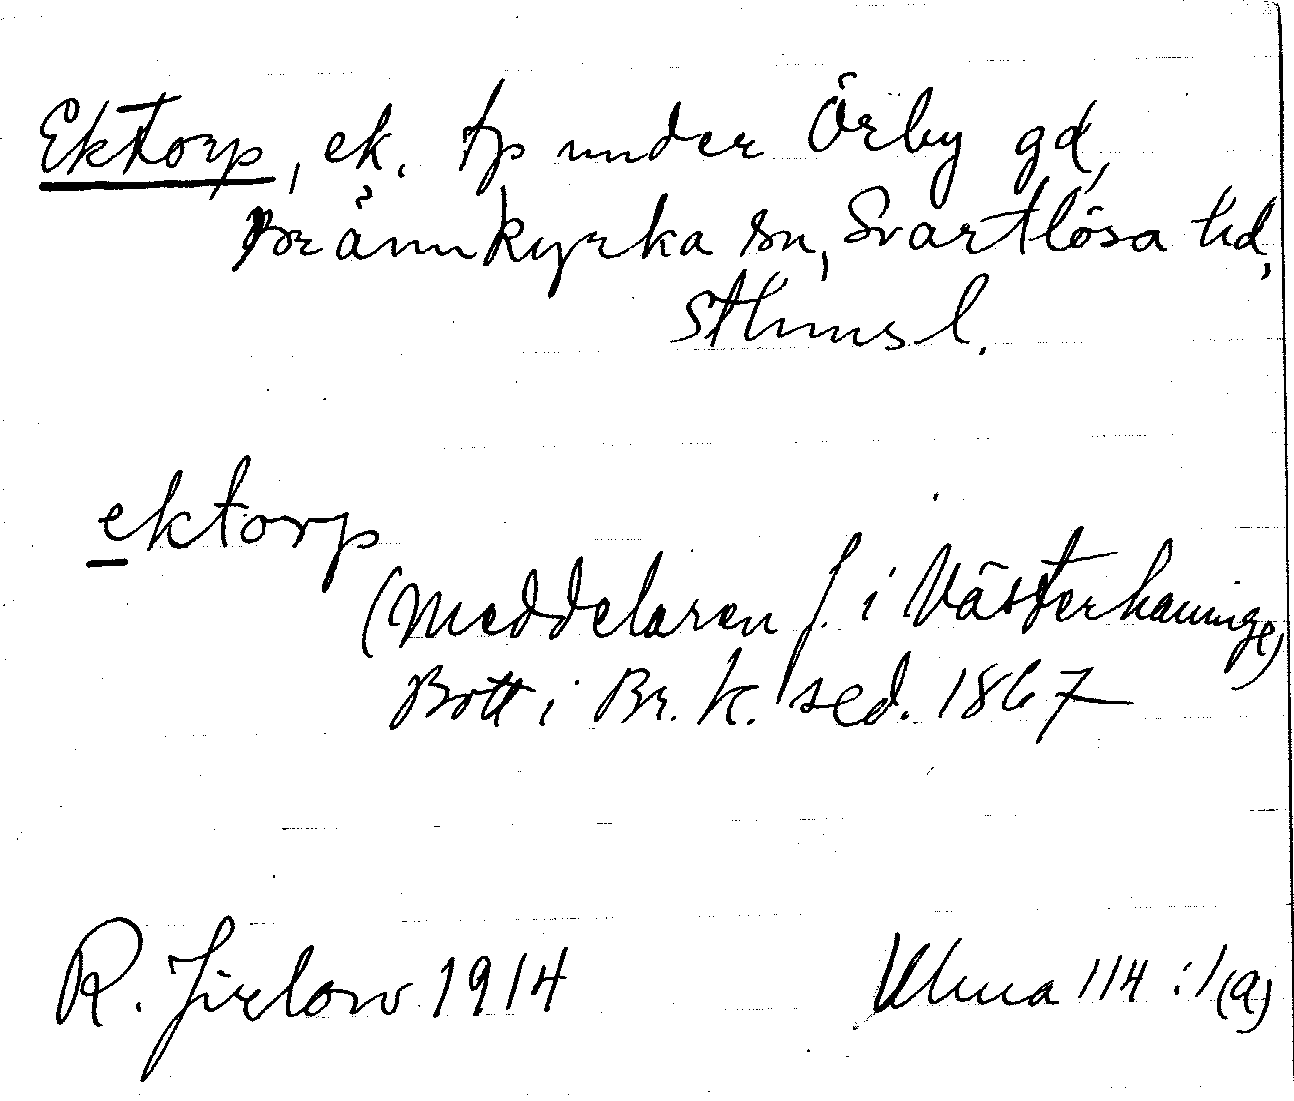 Ektorp, ek. tp under Örby gd,
Brännkyrka sn, Svartlösa hd,
Sthms l.
ektorp
(Meddelaren f. i Västerhaninge,
Bott i Br. k. sed. 1867
R. Jirlow 1914 Ulma 114:1(a)